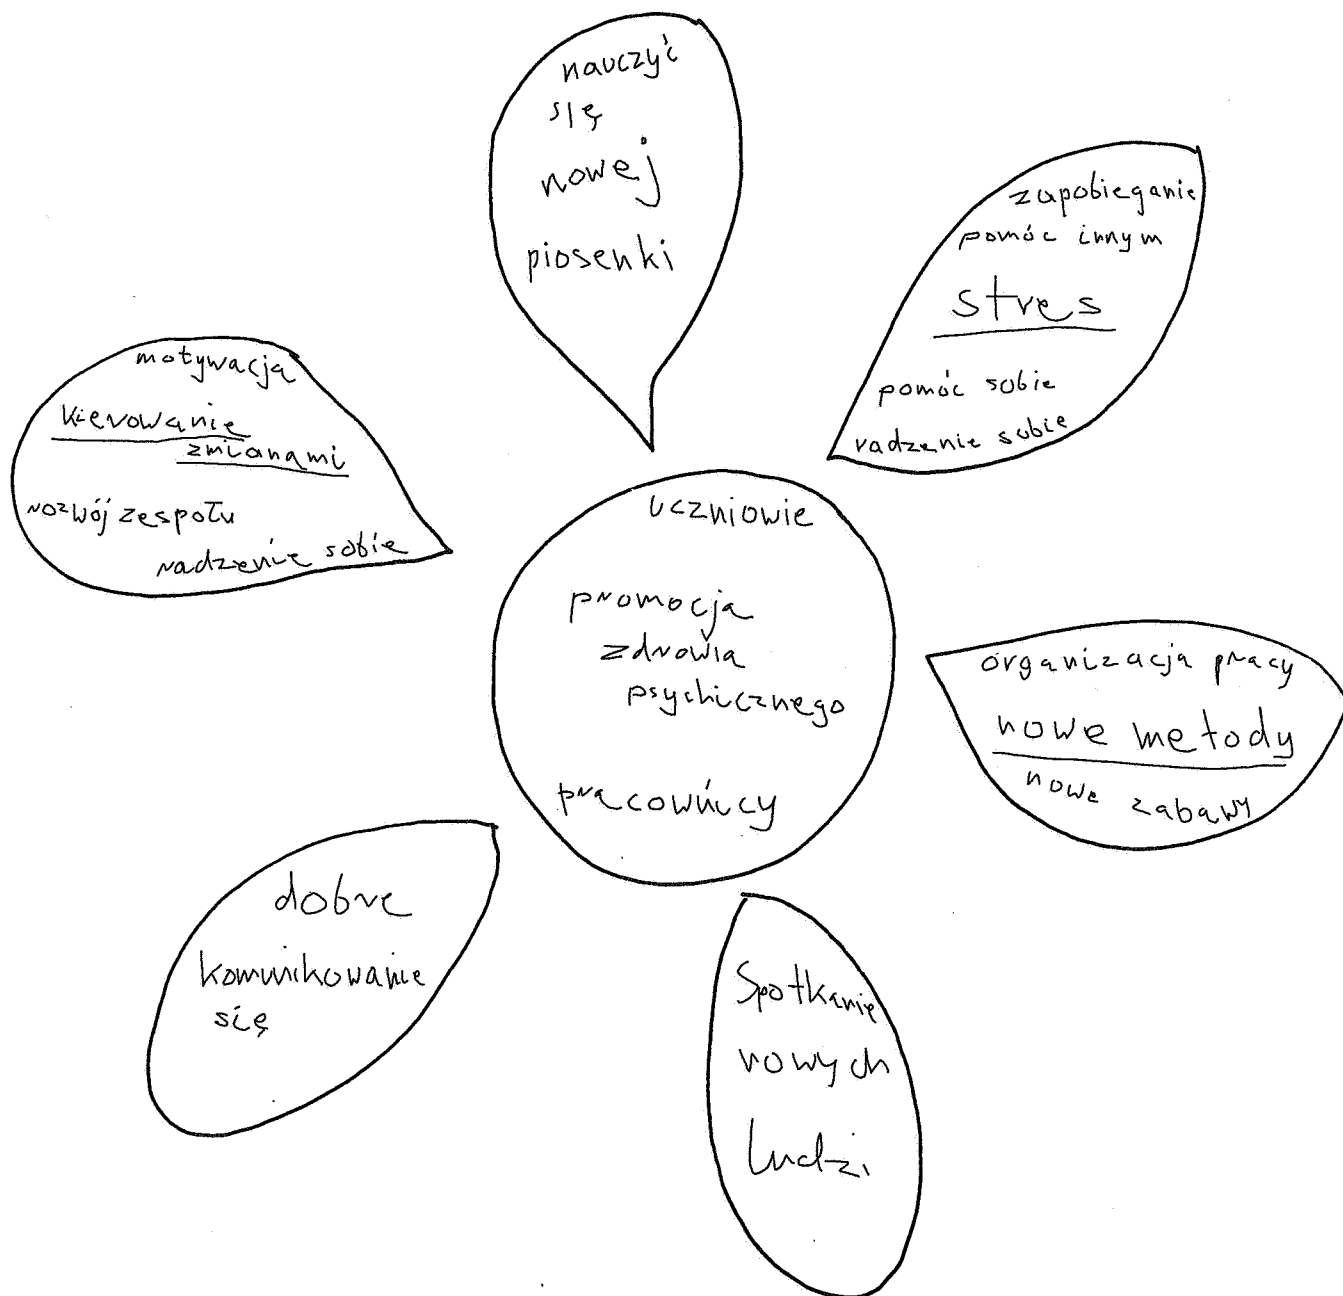 nauczyć
się
nowej
piosenki
zapobieganie
pomóc innym
stres
pomóc sobie
radzenie sobie
motywacja
kierowanie
zmianami
rozwój zespołu
radzenie sobie
uczniowie
promocja
zdrowia
psychicznego
pracowńicy
organizacja pracy
nowe metody
nowe zabawy
dobre
komunikowanie
się
Spotkanie
nowych
ludzi